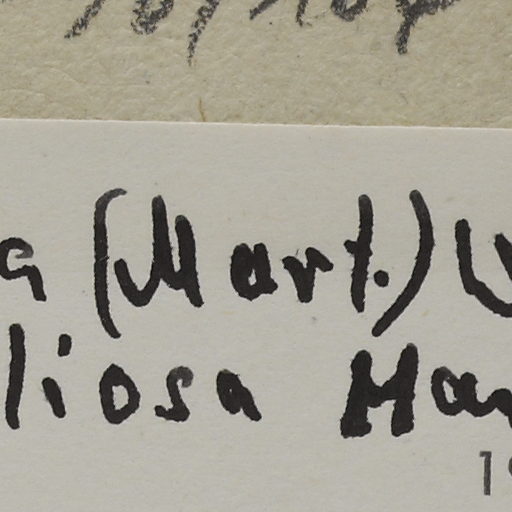 a (Mart.)
liosa Mar
19